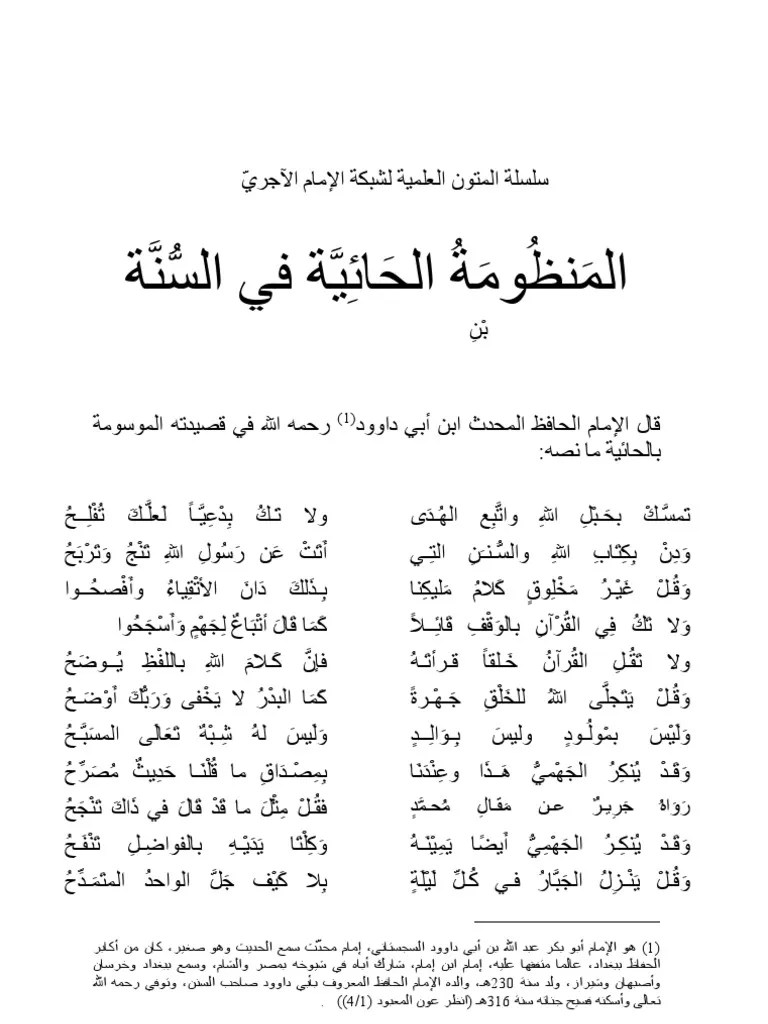 سلسلة المتون العلمية لشبكة الإمام الآجريّ
المَنظُومَةُ الحَائِيَّة في السُّنَّة
بْنِ
قال الإمام الحافظ المحدث ابن أبي داوود(1) رحمه الله في قصيدته الموسومة
بالحائية ما نصه:
تَمسَّكْ بحَبْلِ اللهِ واتَّبِعِ الهُدَى ولا تَكُ بِدْعِيَّاً لَعلَّكَ تُفْلِحُ
وَدِنْ بِكِتَابِ اللهِ والسُّنَنِ التِي أَتَتْ عَن رَسُولِ اللهِ تَنْجُ وَتَرْبَحُ
وَقُلْ غَيْرُ مَخْلِوقٍ كَلامُ مَليكِنا بِذَلكَ دَانَ الأتْقِياءُ وأَفْصحُوا
وَلا تَكُ فِي القُرْآنِ بالوَقْفِ قَائِلاً كَمَا قَالَ أتْبَاعٌ لِجَهْمٍ وَأَسْجَحُوا
ولا تَقُلِ القُرآنُ خَلقاً قرأتَهُ فإنَّ كَلامَ اللهِ باللفْظِ يُوضَحُ
وَقُلْ يَتَجلَّى اللهُ للخَلْقِ جَهْرةً كَمَا البدْرُ لا يَخْفى وَرَبُّكَ أوْضَحُ
وَلَيْسَ بمْولُودٍ وليسَ بِوَالِدٍ وَلَيسَ لهُ شِبْهٌ تَعَالَى المسَبَّحُ
وَقَدْ يُنكِرُ الجَهْميُّ هَذَا وعِنْدَنَا بِمِصْدَاقِ ما قُلْنَا حَدِيثٌ مُصَرِّحُ
رَوَاهُ جَرِيرٌ عن مَقَالِ مُحمَّدٍ فقُلْ مِثْلَ ما قَدْ قَالَ في ذَاكَ تَنْجَحُ
وَقَدْ يُنكِرُ الجَهْمِيُّ أيضًا يَمِيْنَهُ وَكِلْتَا يَدَيْهِ بالفواضِلِ تَنْفَحُ
وَقُلْ يَنْزِلُ الجَبَّارُ في كُلِّ لَيْلَةٍ بِلا كَيْف جَلَّ الواحدُ المتَمَدِّحُ
(1) هو الإمام أبو بكر عبد الله بن أبي داوود السجستاني، إمام محدّث سمع الحديث وهو صغير، كان من أكابر
الحفاظ ببغداد، عالما متفقها عليه، إمام ابن إمام، شارك أباه في شيوخه بمصر والشام، وسمع ببغداد وخرسان
وأصبهان وشيراز، ولد سنة 230هـ، والده الإمام الحافظ المعروف بأبي داوود صاحب السنن، وتوفي رحمه الله
تعالى وأسكنه فسيح جنانه سنة 316هـ (انظر عون المعبود (4/1)) .